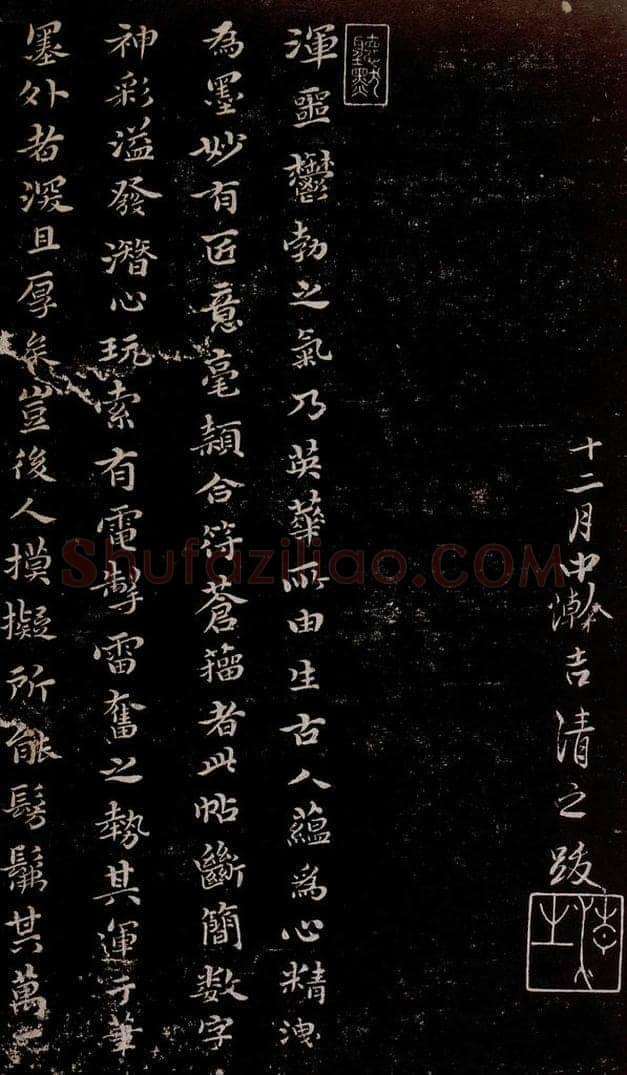 十二月中澣吉清之跋
渾噩鬱勃之氣乃英華所由生古人蘊為心精洩
為墨妙有匠意毫顛合符蒼籀者此帖斷簡數字
神彩溢發潛心玩索有電擊雷奮之勢其運于筆
墨外者深且厚矣豈後人摸擬所能髣髴其萬一
Shufaziliao.COM